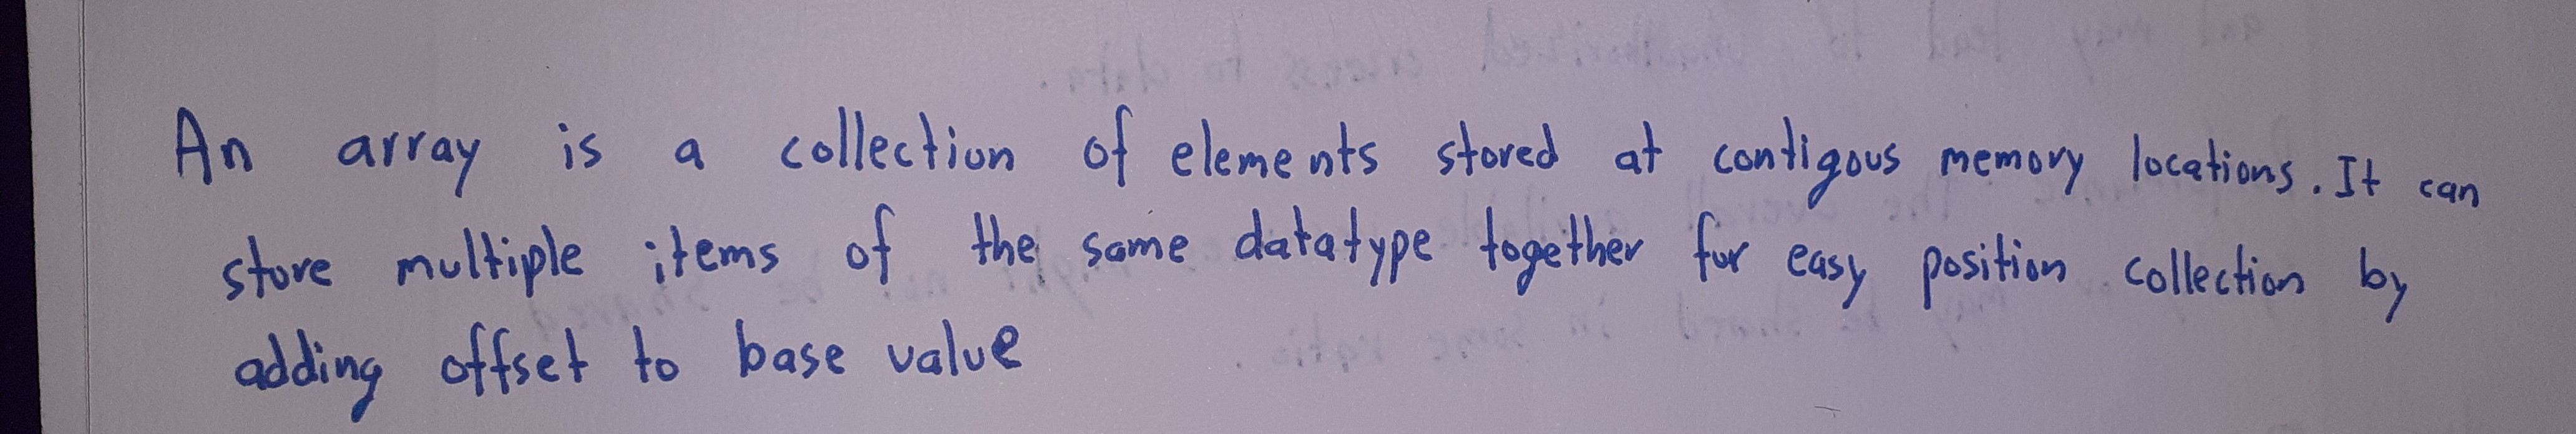 An array is a collection of elements stored at contigous memory locations. It can
store multiple items of the same datatype together for easy position collection by
adding offset to base value